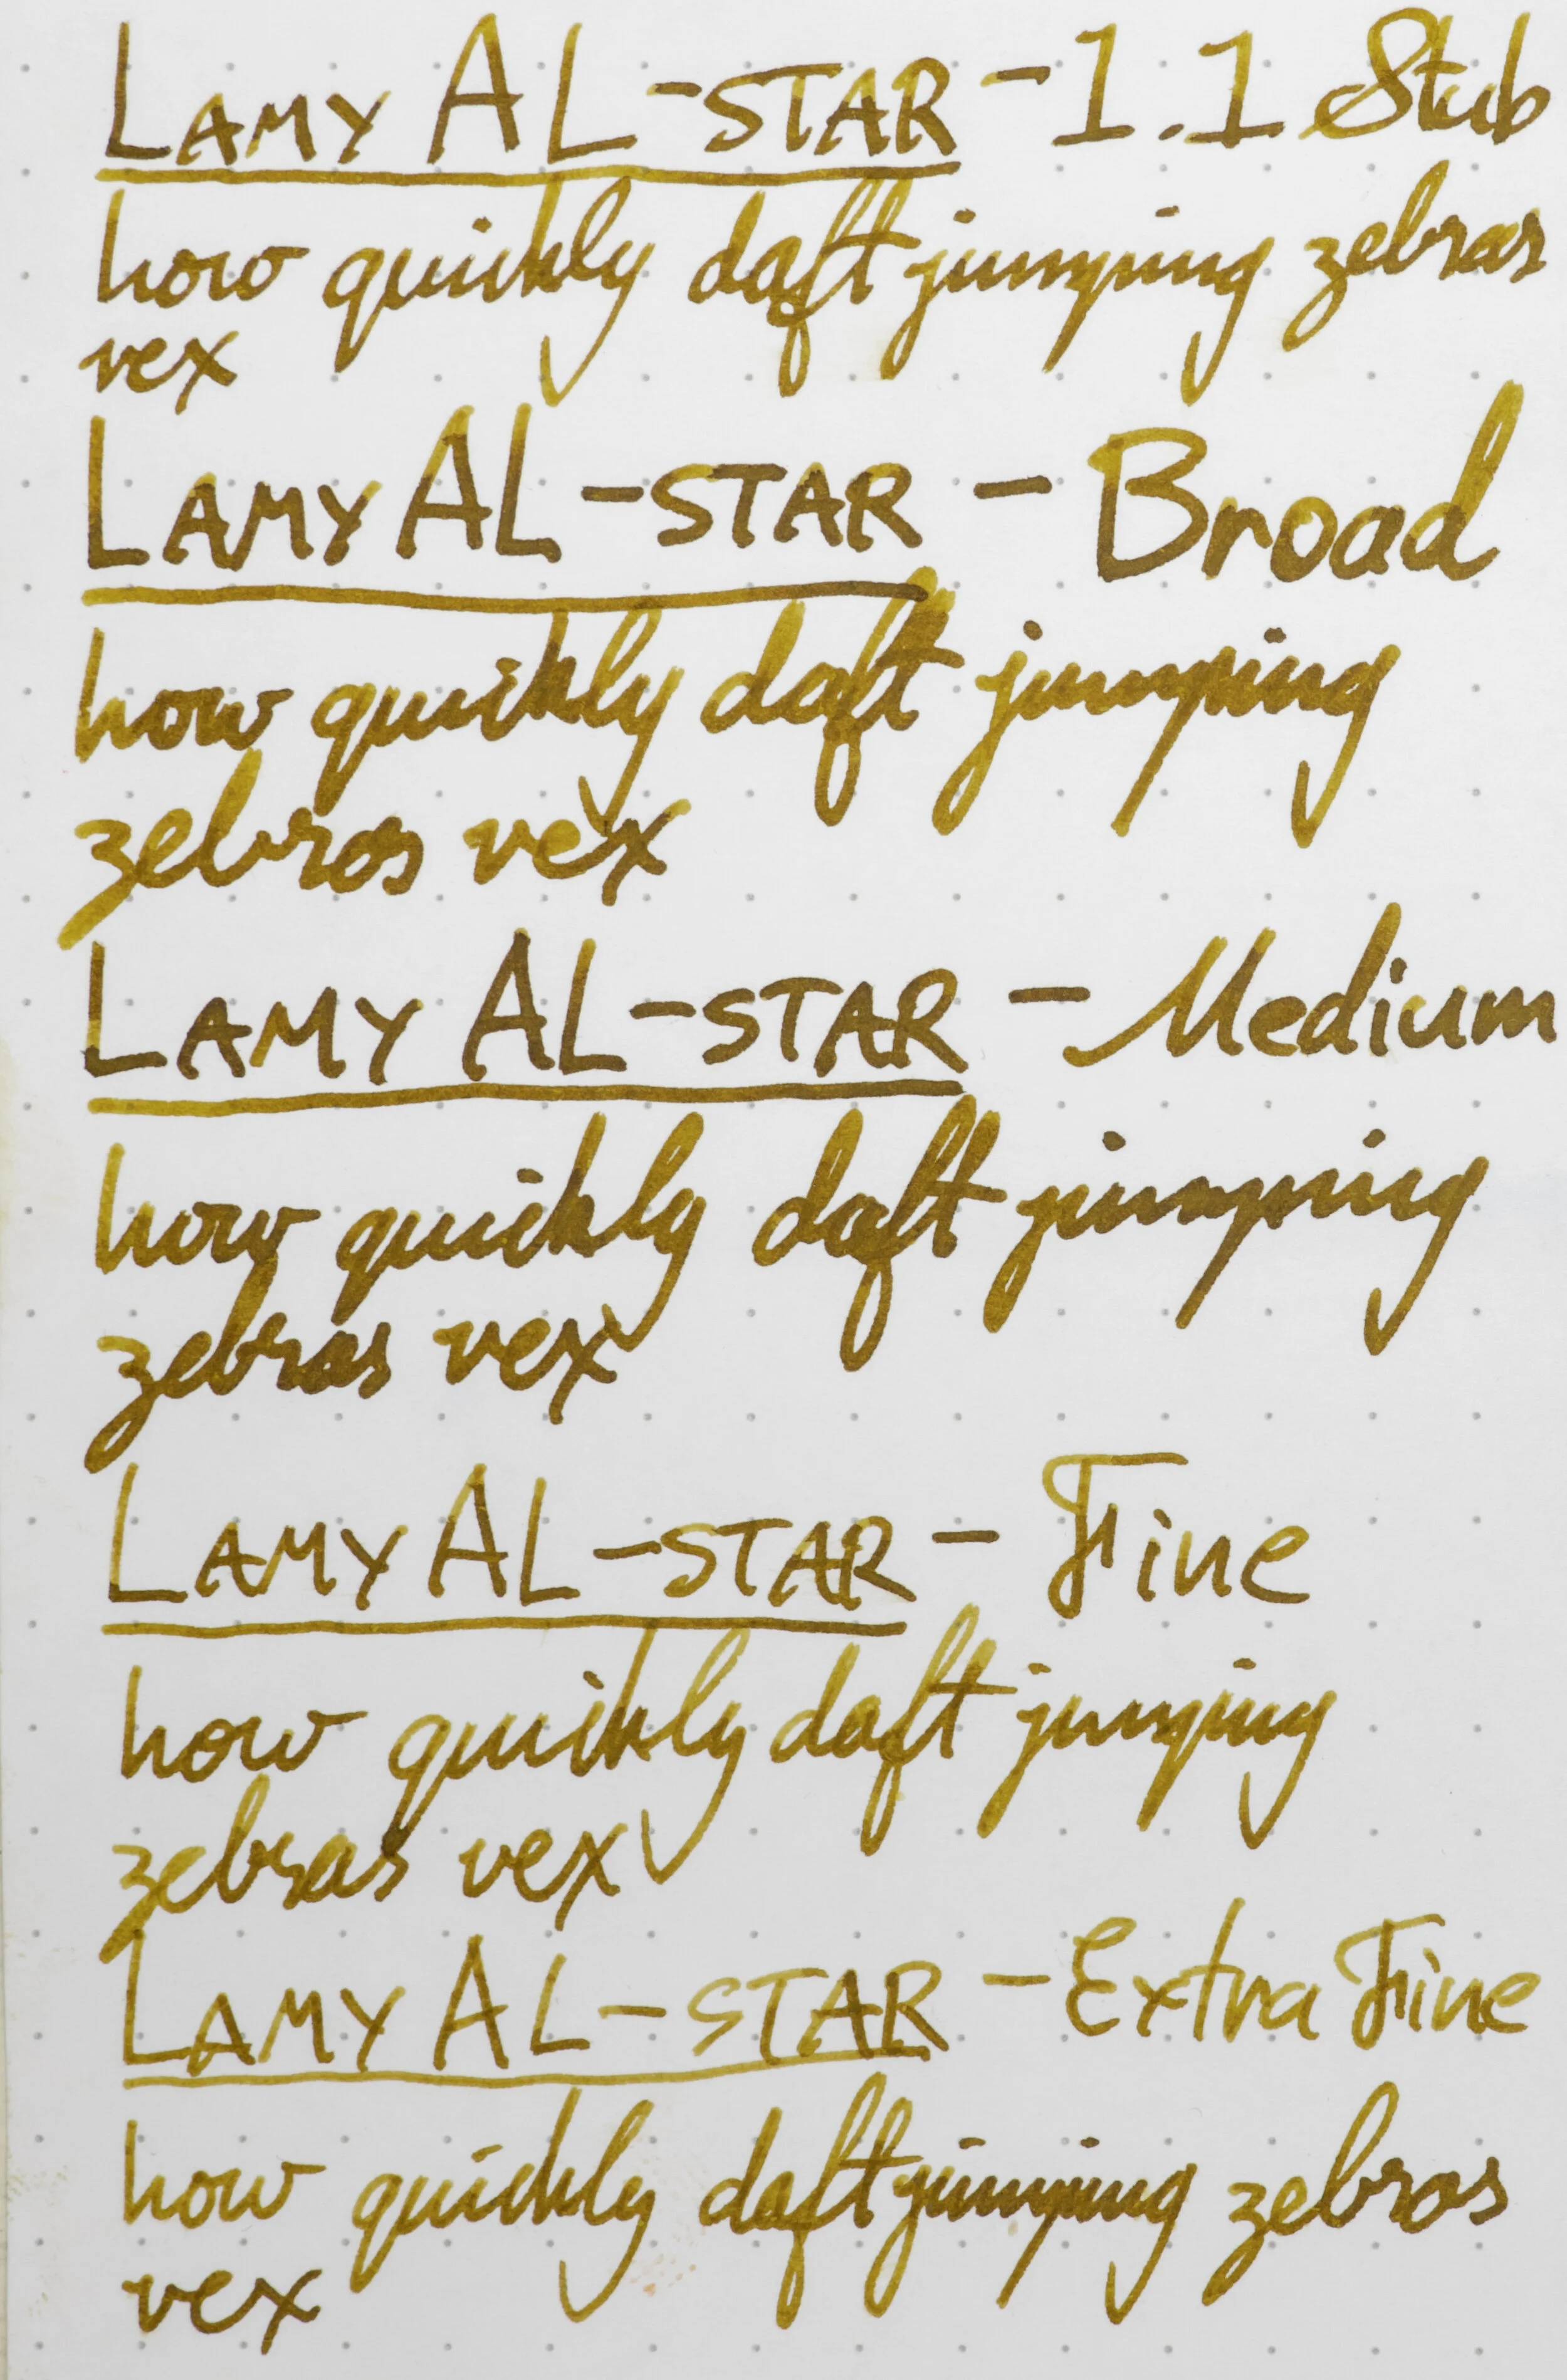 LAMY AL-STAR - 1.1 Stub
how quickly daft jumping zebras
vex
LAMY AL-STAR - Broad
how quickly daft jumping
zebras vex
LAMY AL-STAR - Medium
how quickly daft jumping
zebras vex
LAMY AL-STAR - Fine
how quickly daft jumping
zebras vex
LAMY AL-STAR - Extra Fine
how quickly daft jumping zebras
vex